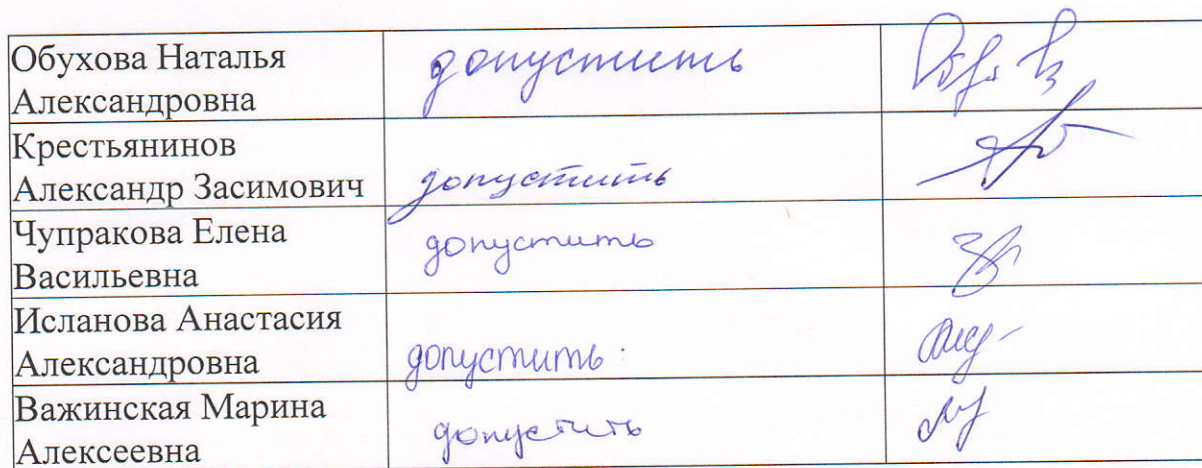 Обухова Наталья допустить
Александровна
Крестьянинов
Александр Засимович допустить
Чупракова Елена допустить
Васильевна
Исланова Анастасия
Александровна допустить
Важинская Марина
Алексеевна допустить